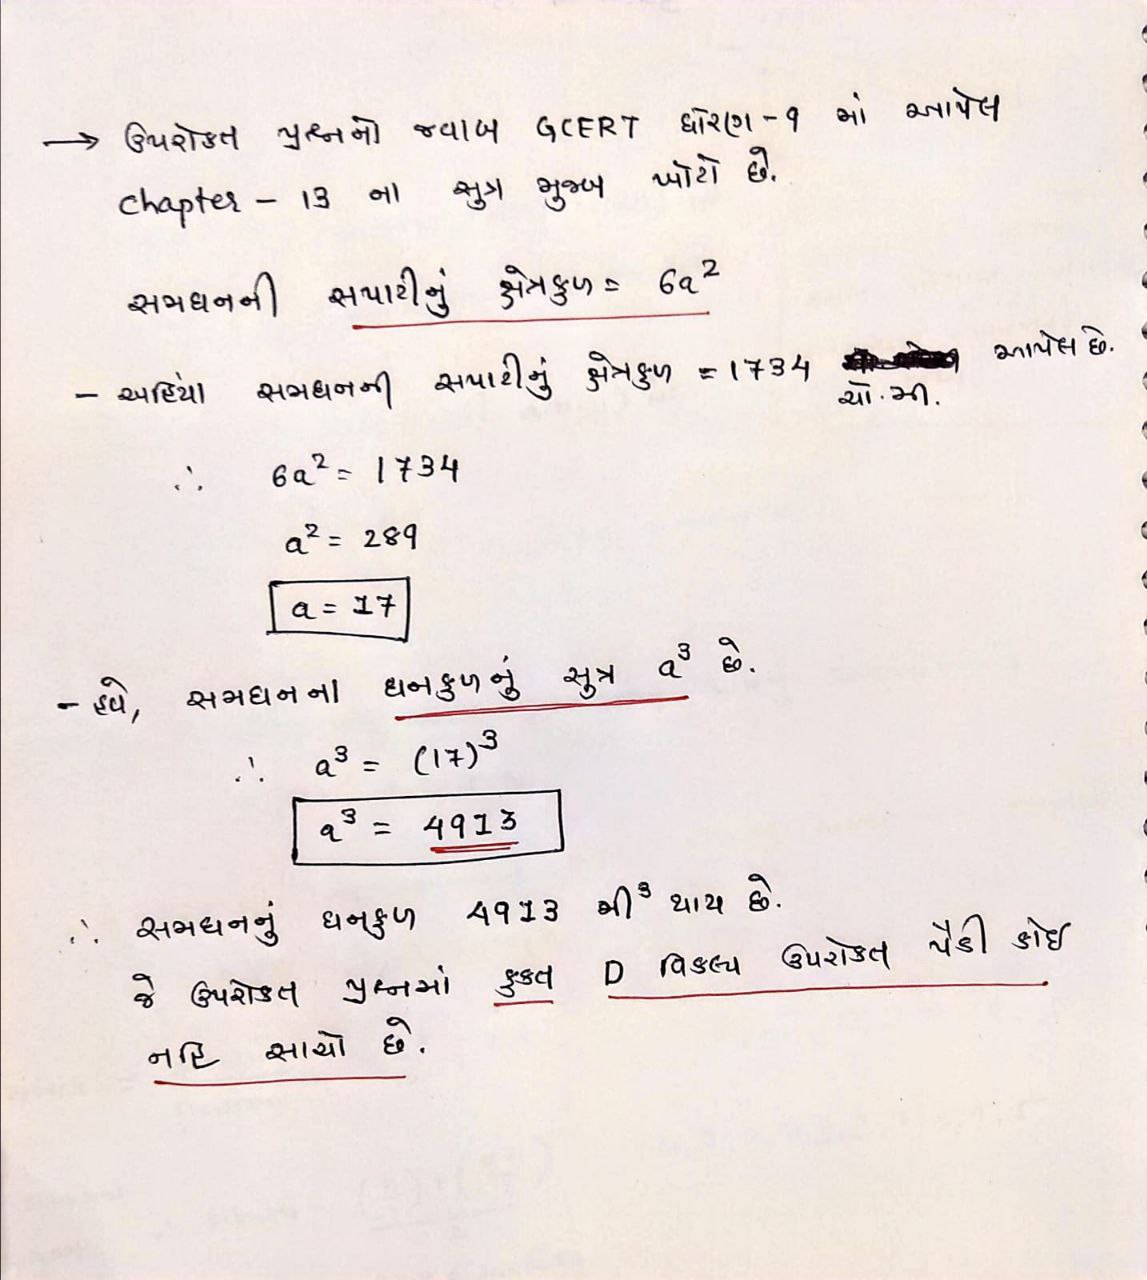 → ઉપરોક્ત પ્રશ્નનો જવાબ GCERT ધોરણ-૧ માં આપેલ
Chapter - 13 ના સુત્ર મુજબ ખોટો છે.
સમઘનની સપાટીનું ક્ષેત્રફળ = 6a²
- અહિંયા સમઘનની સપાટીનું ક્ષેત્રફળ = 1734 આપેલ છે.
ચો.મી.
∴ 6a² = 1734
a² = 289
a = 17
- હવે, સમઘનના ઘનફળનું સુત્ર a³ છે.
∴ a³ = (17)³
a³ = 4913
∴ સમઘનનું ઘનફળ 4913 મી³ થાય છે.
જે ઉપરોક્ત પ્રશ્નમાં ફક્ત D વિકલ્પ ઉપરોક્ત પૈકી કોઈ
નહિ સાચો છે.